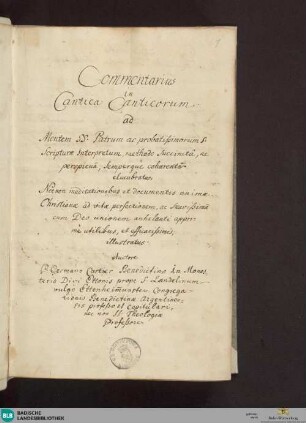 Commentarius
in
Cantica Canticorum
ad
Mentem SS. Patrum ac probatissimorum S.
Scripturæ Interpretum methodo succinctâ, ac
perspicuâ, semperque cohærente
elucubratus.
Necnon industrialibus et documentis animæ
Christianæ ad vitæ perfectionem, ac
cum Deo unionem anhelanti appri-
mè utilibus, et efficacissimis,
illustratus
Autore
P. Germano Cartier Benedictino in Monas-
terio Divi Ettonis prope S. Landelinum
vulgo Ettenheimmünster Congrega-
tionis Benedictinæ Argentinen-
sis professo et capitulari,
nec non SS. Theologiæ
Professore
BLB BADISCHE
LANDESBIBLIOTHEK
Baden-Württemberg